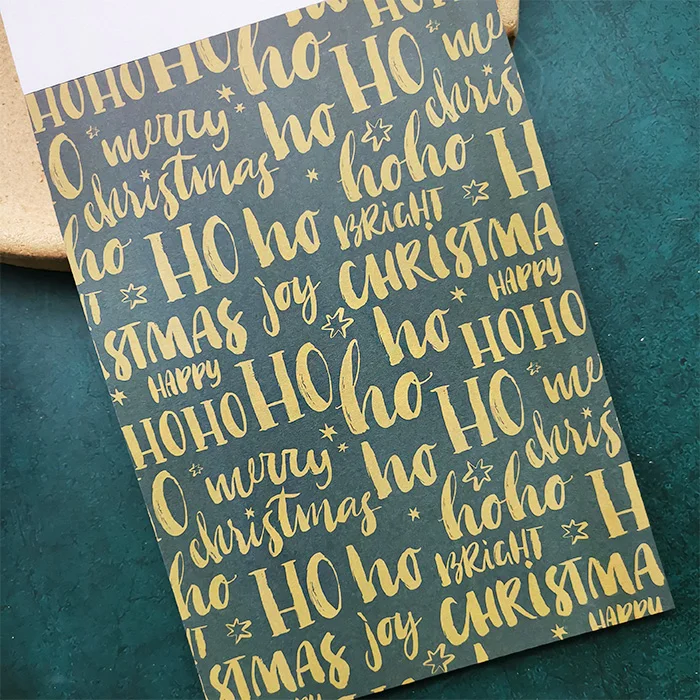 HOHO HO ho HO me
O merry ho chris
christmas hoho H
ho HO ho BRIGHT
T joy CHRISTMA
STMAS HAPPY
HAPPY ho HOHO
HOHO HO ho HO me
O merry ho chris
christmas hoho H
ho HO ho BRIGHT
T joy CHRISTMA
STMAS HAPPY